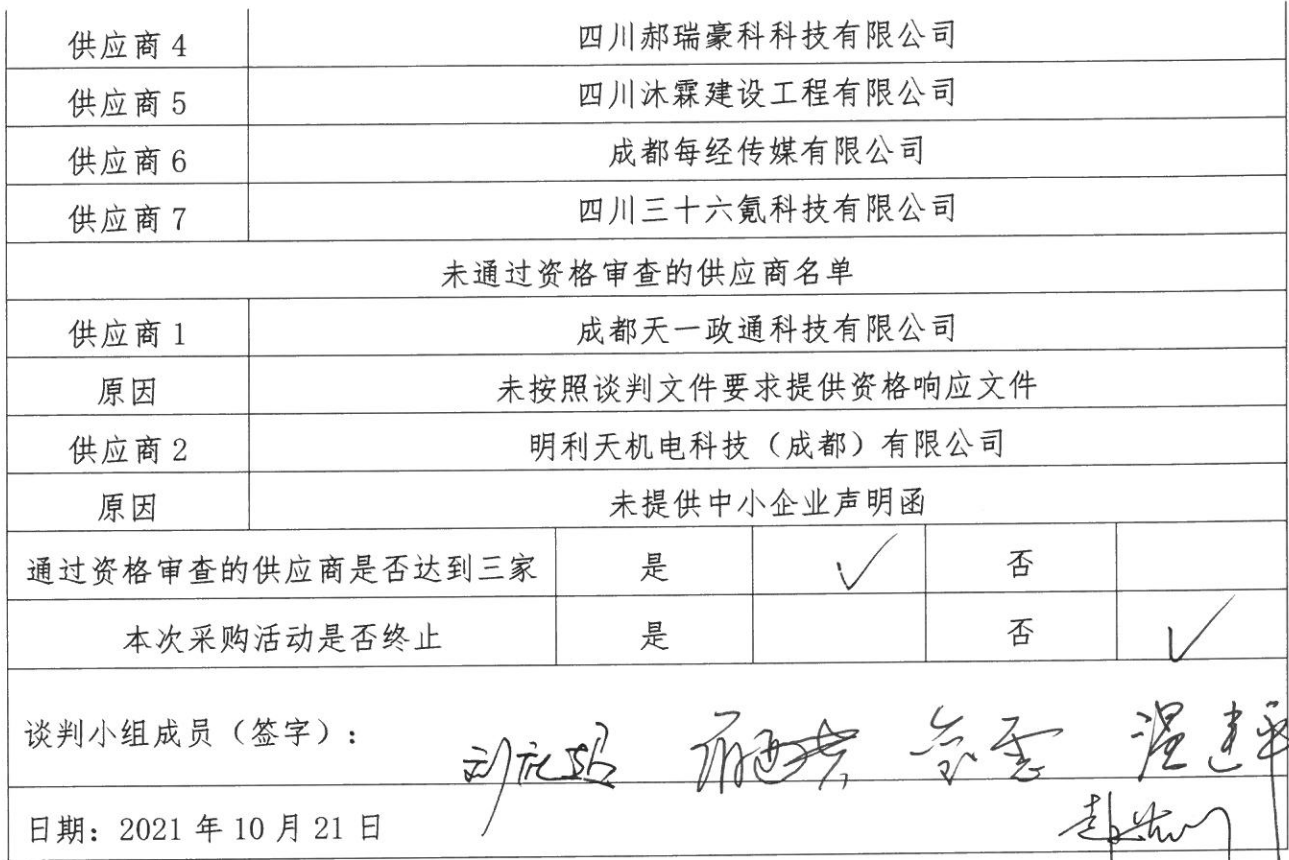 供应商 4 四川郝瑞豪科科技有限公司
供应商 5 四川沐霖建设工程有限公司
供应商 6 成都每经传媒有限公司
供应商 7 四川三十六氪科技有限公司
未通过资格审查的供应商名单
供应商 1 成都天一政通科技有限公司
原因 未按照谈判文件要求提供资格响应文件
供应商 2 明利天机电科技（成都）有限公司
原因 未提供中小企业声明函
通过资格审查的供应商是否达到三家 是 ✓ 否
本次采购活动是否终止 是 否 ✓
谈判小组成员（签字）： 温建平
日期: 2021 年 10 月 21 日